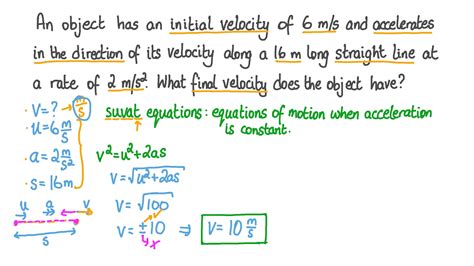 An object has an initial velocity of 6 m/s and accelerates
in the direction of its velocity along a 16 m long straight line at
a rate of 2 m/s². What final velocity does the object have?
• V = ? → m/s
• u = 6 m/s
• a = 2 m/s²
• s = 16 m
u a v
s
suvat equations: equations of motion when acceleration
is constant.
v² = u² + 2as
v = √u² + 2as
v = √100
v = ±10 ⇒ V = 10 m/s
y x